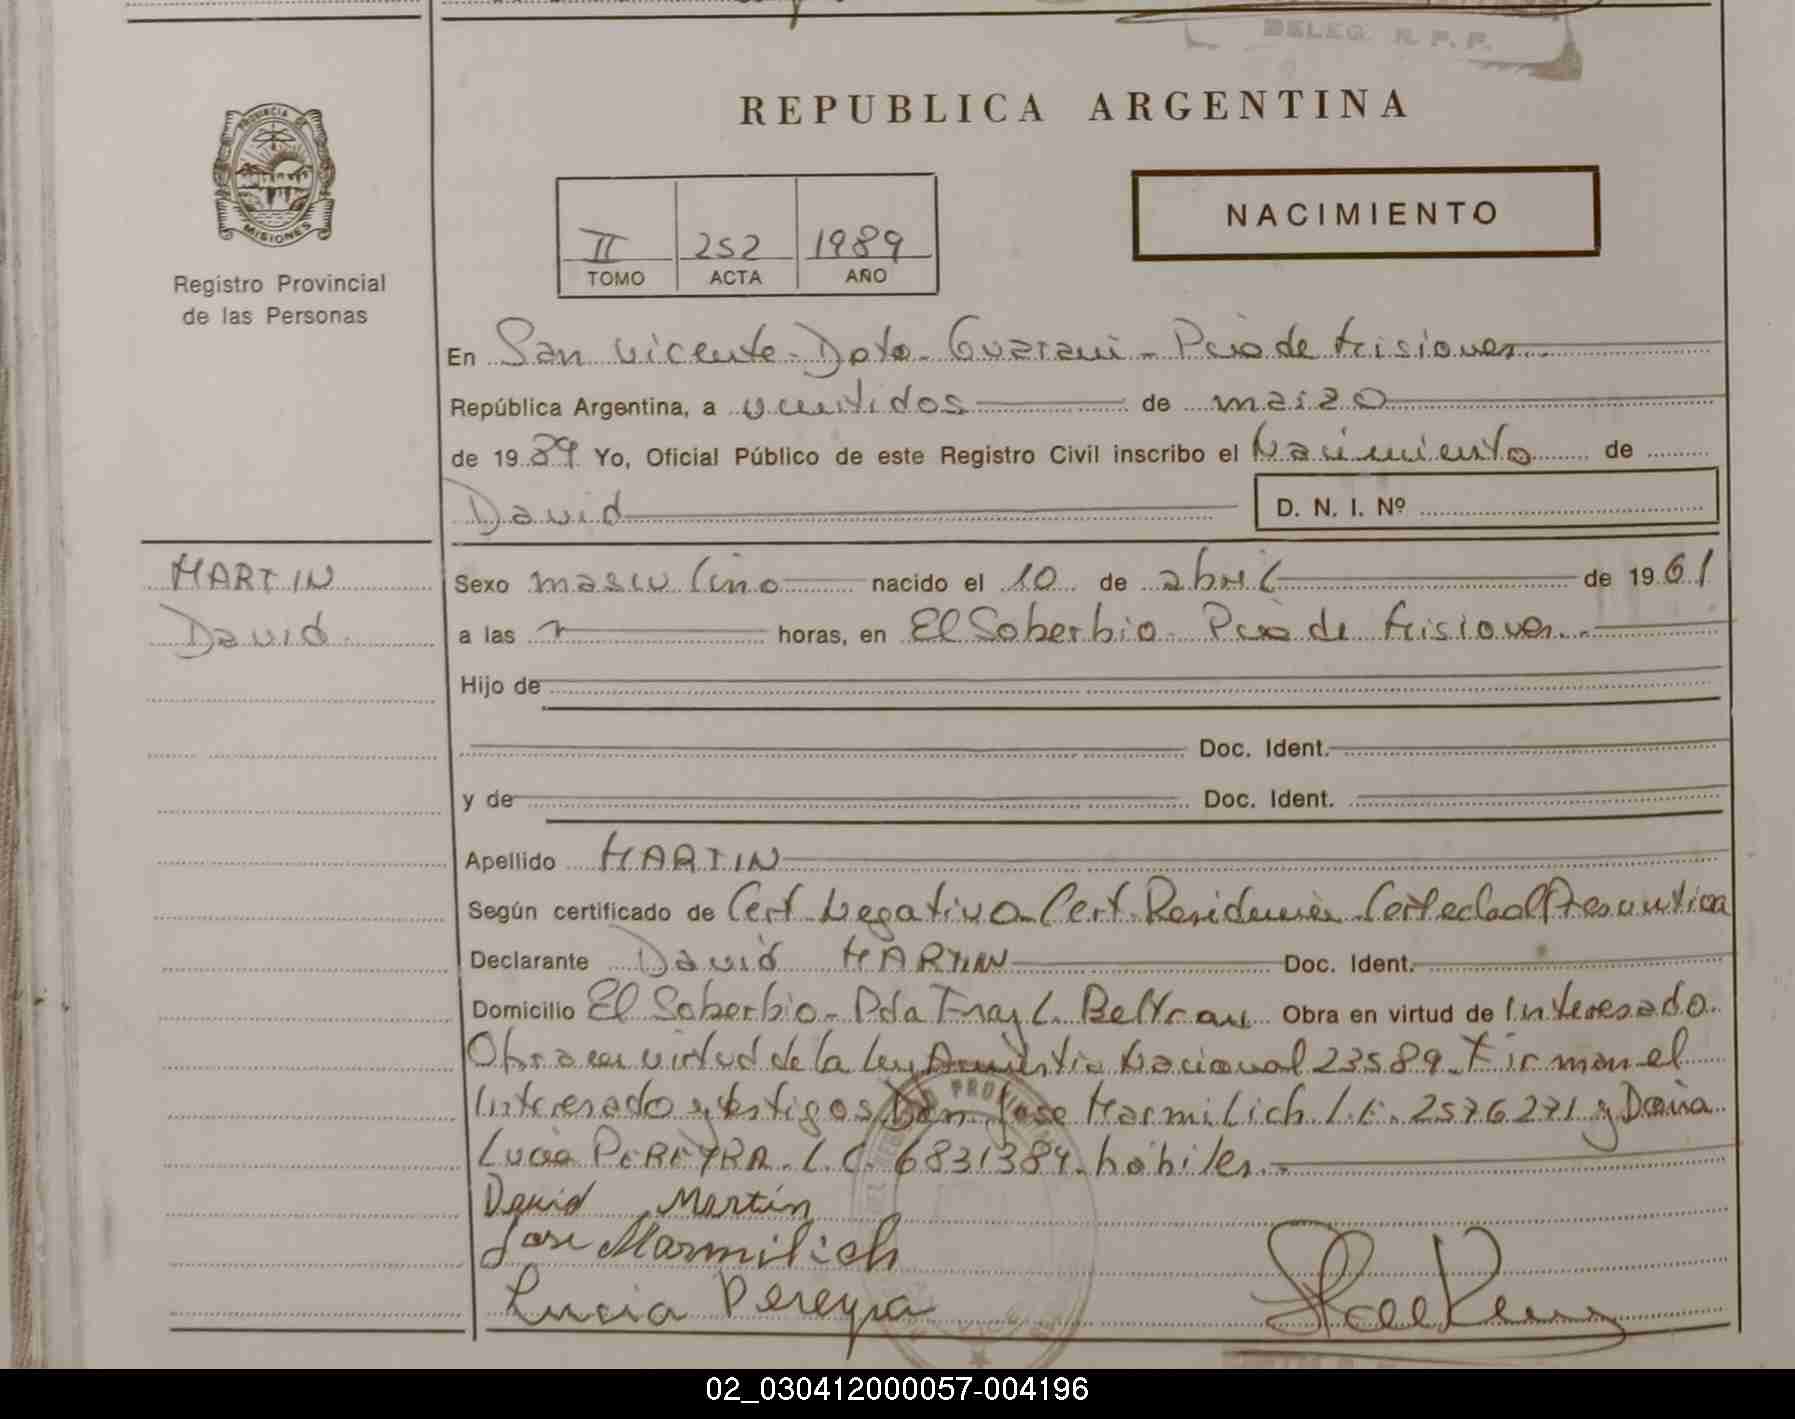 DELEG. R. P. P.
PROVINCIA DE
MISIONES
Registro Provincial
de las Personas
REPUBLICA ARGENTINA
II 252 1989
TOMO ACTA AÑO
NACIMIENTO
En San Vicente - Dpto. Guarani - Pcia de Misiones
República Argentina, a veintidos de marzo
de 1989 Yo, Oficial Público de este Registro Civil inscribo el Nacimiento de
David D. N. I. Nº
MARTIN
David
Sexo masculino nacido el 10 de abril de 1961
a las horas, en El Soberbio - Pcia de Misiones
Hijo de
Doc. Ident.
y de Doc. Ident.
Apellido MARTIN
Según certificado de Cert. Negativo - Cert. Residencia - Cert edad Presuntiva
Declarante David MARTIN Doc. Ident.
Domicilio El Soberbio - Pda Fray L. Beltran Obra en virtud de Interesado
Obra en virtud de la ley Amnistia Nacional 23589. Firman el
Interesado y testigos Don Jose Marmilich L.E. 2576271 y Doña
Lucia PEREYRA. L.C. 6831384. habiles.
David Martín
Jose Marmilich
Lucia Pereyra
02_030412000057-004196